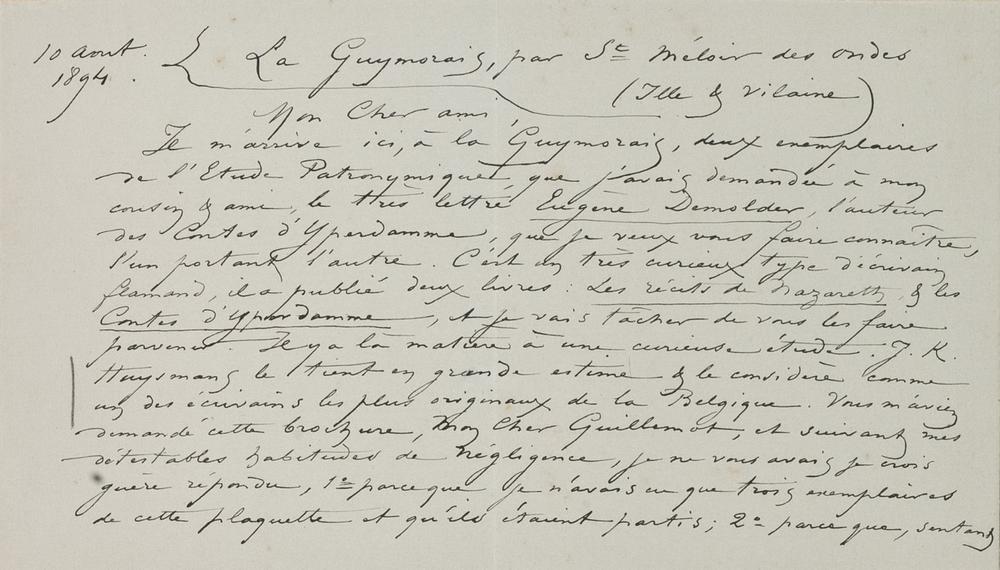 10 aout
1894.
La Guymorais, par St Méloir des ondes
(Ille & vilaine)
Mon Cher ami,
Il m'arrive ici, à la Guymorais, deux exemplaires
de l'Etude Patronymique que j'avais demandée à mon
cousin & ami, le très lettré Eugène Demolder, l'auteur
des Contes d'Yperdamme, que je veux vous faire connaître,
l'un portant l'autre. C'est un très curieux type d'écrivain
flamand, il a publié deux livres : Les récits de Nazareth, & les
Contes d'Yperdamme, et je vais tâcher de vous les faire
parvenir. Il y a là matière à une curieuse étude. J. K.
Huysmans le tient en grande estime & le considère comme
un des écrivains les plus originaux de la Belgique. Vous m'aviez
demandé cette brochure, mon Cher Guillemot, et suivant mes
détestables habitudes de négligence, je ne vous avais je crois
guère répondu, 1° parce que je n'avais eu que trois exemplaires
de cette plaquette et qu'ils étaient partis; 2° parce que, sentant